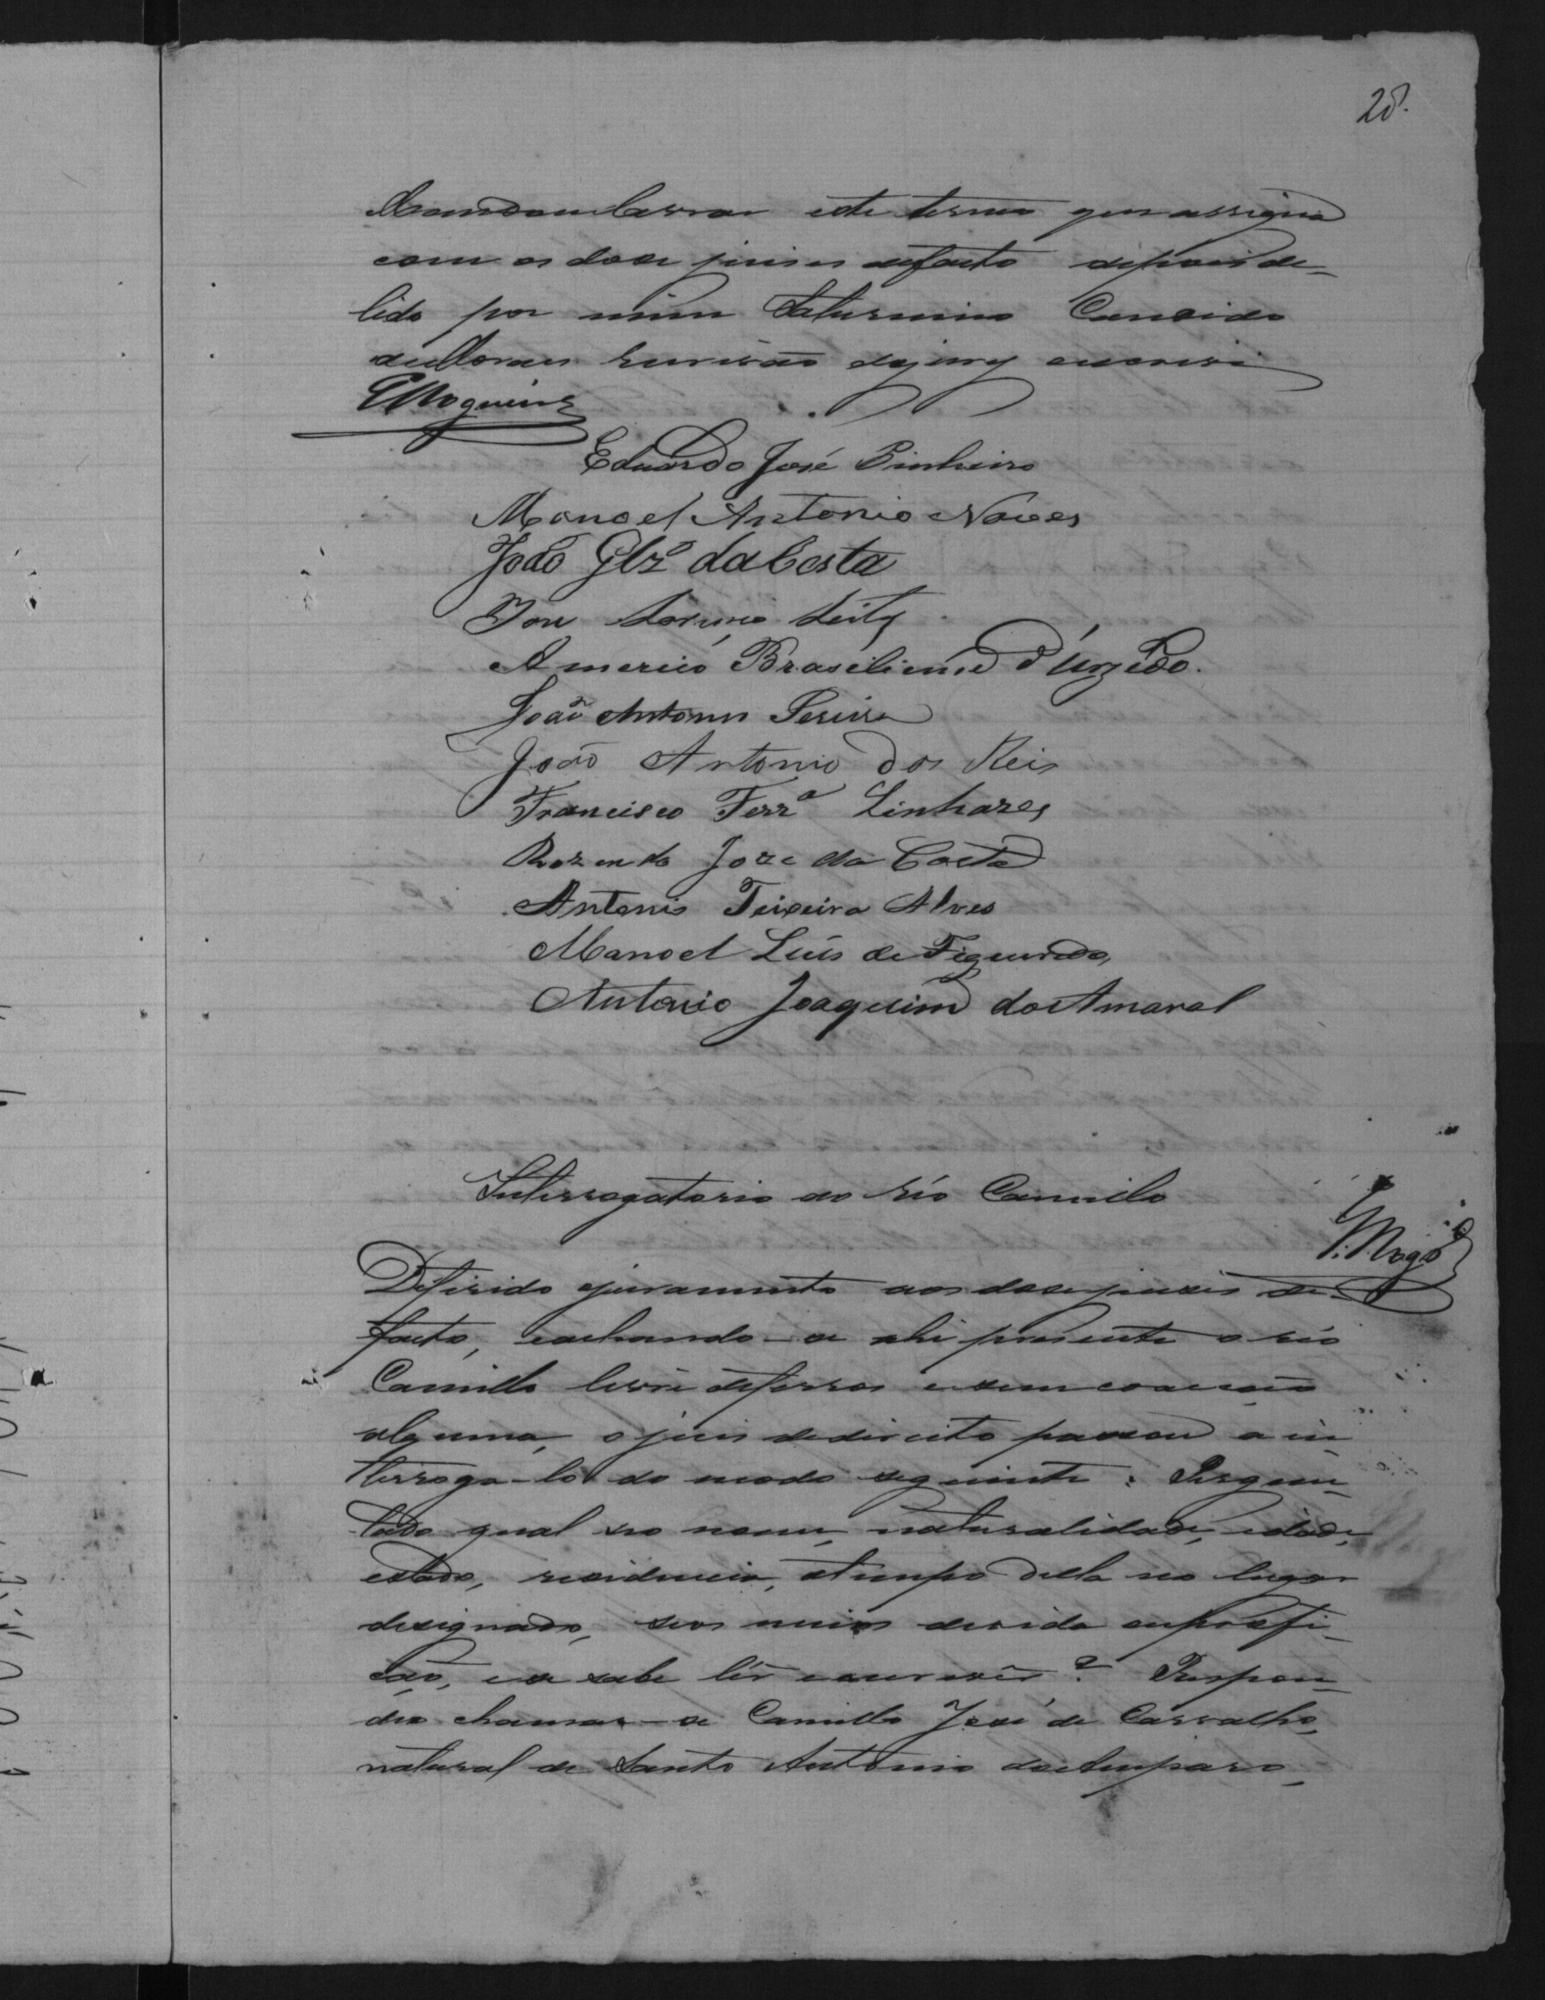 28.
Mandou lavrar este termo que assigna
com os doze juises de facto depois de
lido por mim Saturnino Candido
de Moraes Escrivão do jury escrevi
Nogueira
Eduardo José Pinheiro
Manoel Antonio Novaes
João Glz. da Costa
José Lourenço Leite
Americo Brasiliense d'Urzedo.
João Antonio Pereira
João Antonio dos Reis
Francisco Ferr.a Linhares
Rozendo Joze da Costa
Antonio Teixeira Alves
Manoel Luis de Figueiredo
Antonio Joaquim do Amaral
Interrogatorio ao réo Camillo
Deferido o juramento aos doze juises de
facto, e achando-se ahi presente o réo
Camillo livre de ferros e sem coacção
alguma, o juis de direito passou a in-
terroga-lo do modo seguinte: Pergun-
tado qual seo nome, naturalidade, edade,
estado, residencia, e tempo della no lugar
designado, seos meios de vida ou profi-
ção, e se sabe lêr e escrever? Respon-
deo chamar-se Camillo José de Carvalho,
natural de Santo Antonio do Amparo,